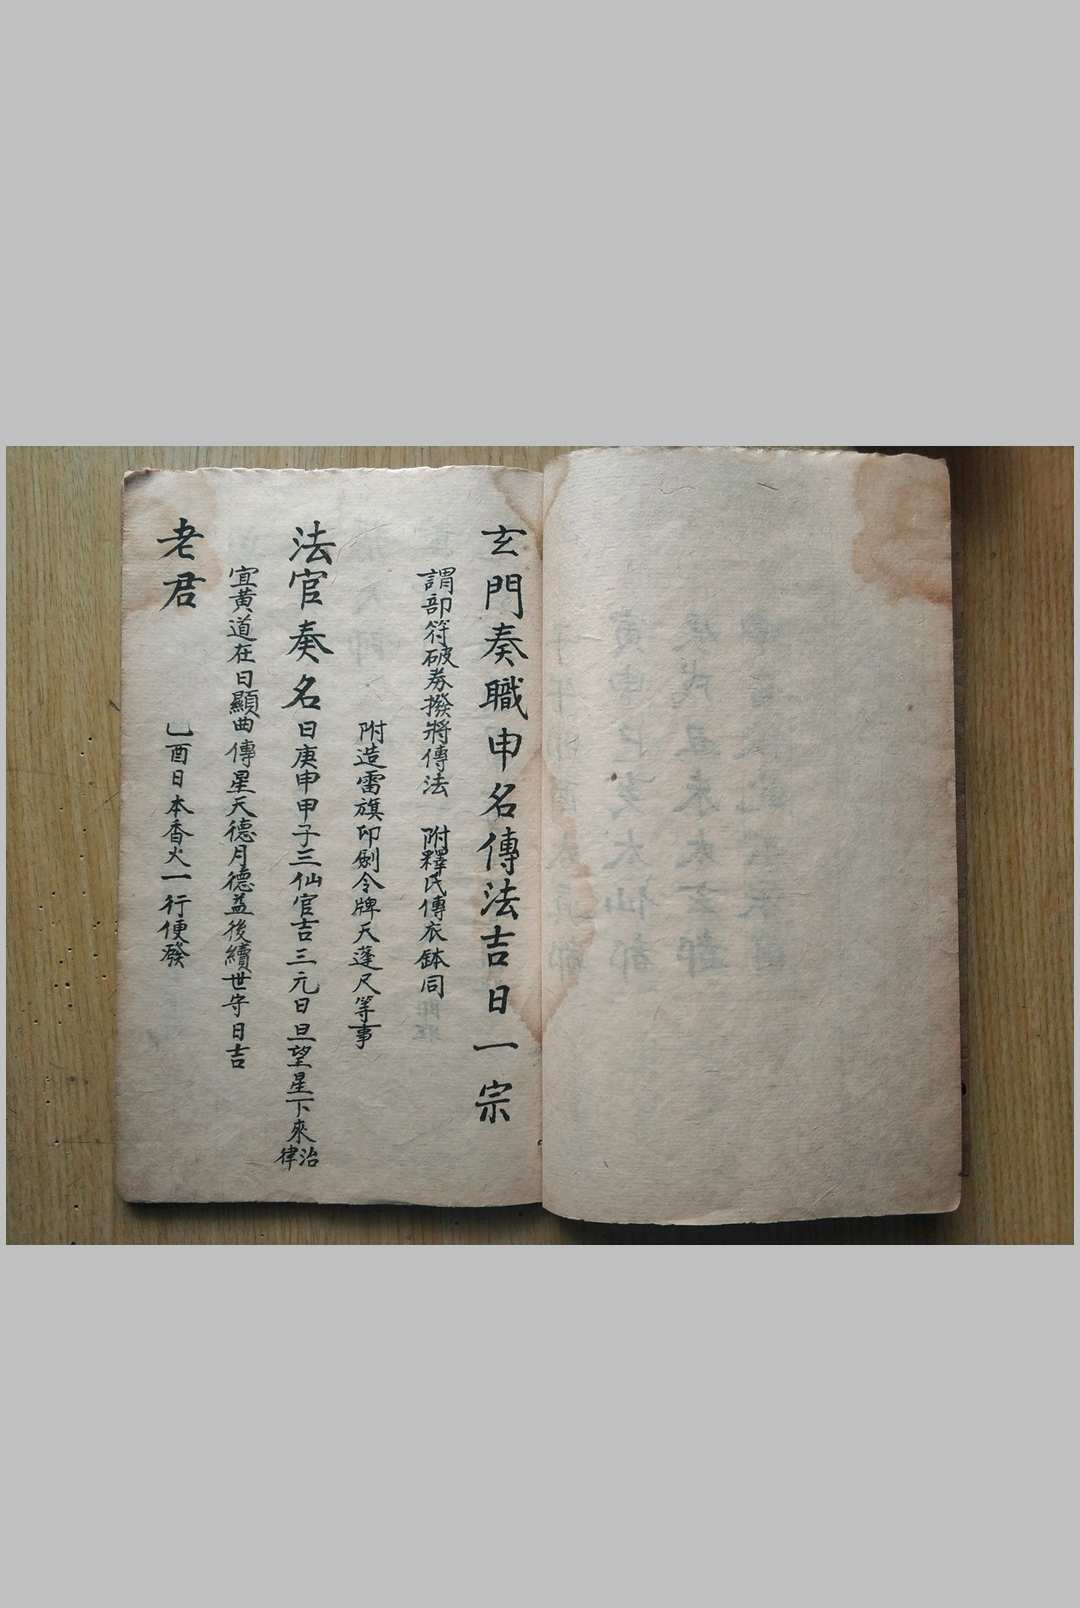 玄門奏職申名傳法吉日一宗
謂部符破券撥將傳法 附釋氏傳衣鉢同
附造雷旗印劍令牌天蓬尺等事
法官奏名日庚申甲子三仙官吉三元日旦望星下來治律
宜黃道在日顯曲傳星天德月德益後續世守日吉
老君 乙酉日本香火一行便發